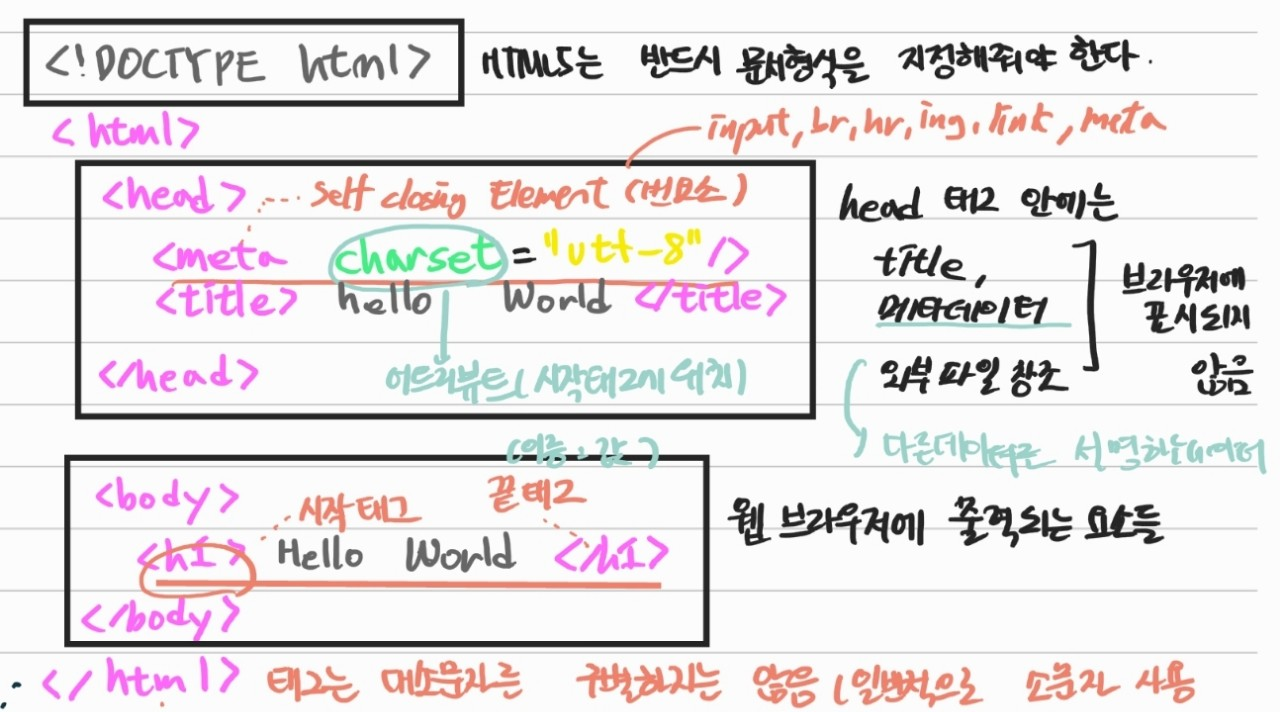 <!DOCTYPE html> HTML5는 반드시 문서형식을 지정해줘야 한다.
<html>
input, br, hr, img, link, meta
<head> Self closing Element (빈요소)
<meta charset = "utf-8" />
<title> hello World </title>
</head>
어트리뷰트 (시작태그에 위치)
(이름, 값)
head 태그 안에는
title,
메타데이터
외부 파일 참조
브라우저에
표시되지
않음
다른데이터를 설명하는데이터
<body>
시작태그 끝태그
<h1> Hello World </h1>
</body>
웹 브라우저에 출력되는 요소들
</html> 태그는 대소문자를 구별하지는 않음 (일반적으로 소문자 사용